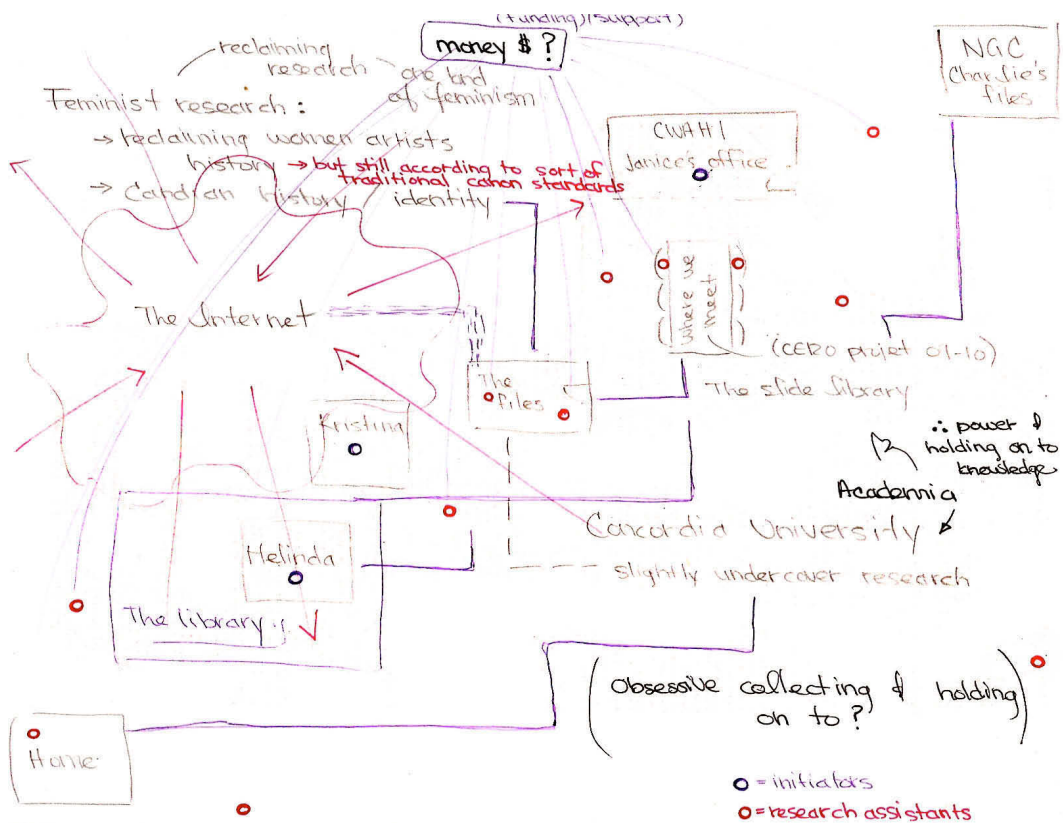 (funding)/support)
money $ ?
reclaiming
research
one kind
of feminism
Feminist research :
→ reclaiming women artists
history → but still according to sort of
traditional canon standards
→ Candian history / identity
NGC
Charlie's
files
CWAHI
Janice's office
where we
meet
The Internet
(CERO projet 01-10)
The slide library
The
files
Kristina
∴ power &
holding on to
knowledge
Academia
Concordia University
slightly undercover research
Melinda
The library
(Obsessive collecting & holding
on to ?)
Home
= initiators
= research assistants